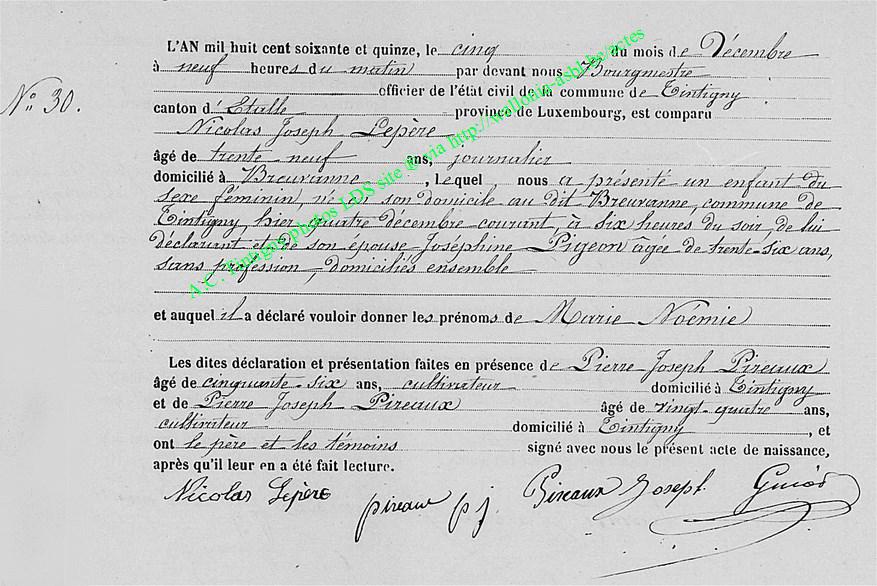 L'AN mil huit cent soixante et quinze, le cinq du mois de Décembre
à neuf heures du matin par devant nous Bourgmestre
officier de l'état civil de la commune de Tintigny
canton d'Etalle province de Luxembourg, est comparu
Nicolas Joseph Lepère
N° 30.
âgé de trente neuf ans, journalier
domicilié à Breuvanne, lequel nous a présenté un enfant du
sexe féminin, né en son domicile au dit Breuvanne, commune de
Tintigny, hier quatre décembre courant, à six heures du soir de lui
déclarant et de son épouse Joséphine Pigeon âgée de trente-six ans,
sans profession, domiciliés ensemble
et auquel il a déclaré vouloir donner les prénoms de Marie Noémie
Les dites déclaration et présentation faites en présence de Pierre Joseph Pireaux
âgé de cinquante-six ans, cultivateur domicilié à Tintigny
et de Pierre Joseph Pireaux âgé de vingt-quatre ans,
cultivateur domicilié à Tintigny, et
ont le père et les témoins signé avec nous le présent acte de naissance,
après qu'il leur en a été fait lecture.
Nicolas Lepère pireaux pj. Pireaux Joseph
A.C. Tintigny photos LDS site @ via http://wallonia-asbl.be/actes